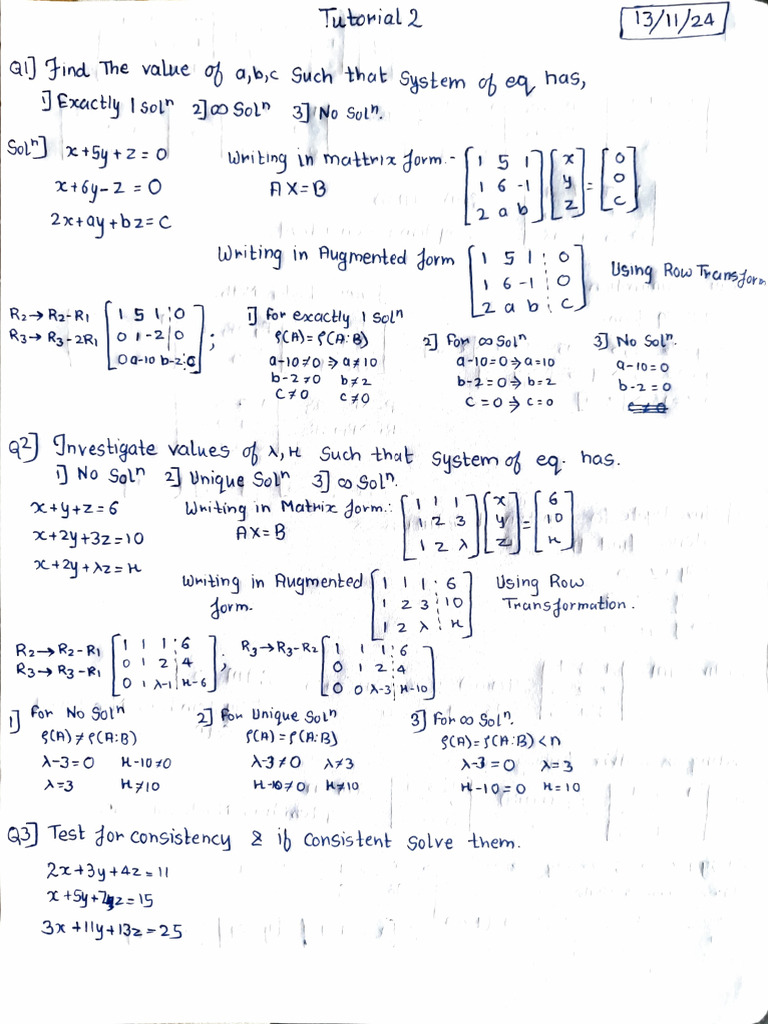 Tutorial 2
13/11/24
Q1] Find The value of a,b,c Such that System of eq has,
1] Exactly 1 Solⁿ 2] ∞ Solⁿ 3] No Solⁿ.
Solⁿ] x+5y+z=0
x+6y-z=0
2x+ay+bz=c
Writing in mattrix form.- [1 5 1] [x] = [0]
AX=B [1 6 -1] [y] [0]
[2 a b] [z] [c]
Writing in Augmented form [1 5 1 : 0] Using Row Transform
[1 6 -1 : 0]
[2 a b : c]
R₂→R₂-R₁ [1 5 1 : 0]
R₃→R₃-2R₁ [0 1 -2 : 0] ;
[0 a-10 b-2 : c]
1] for exactly 1 Solⁿ
ρ(A)=ρ(A:B)
a-10≠0 ⇒ a≠10
b-2≠0 b≠2
c≠0 c≠0
2] For ∞ Solⁿ
a-10=0 ⇒ a=10
b-2=0 ⇒ b=2
c=0 ⇒ c=0
3] No Solⁿ.
a-10=0
b-2=0
Q2] Investigate values of λ,μ such that system of eq. has.
1] No Solⁿ 2] Unique Solⁿ 3] ∞ Solⁿ.
x+y+z=6
x+2y+3z=10
x+2y+λz=μ
Writing in Matrix form.: [1 1 1] [x] = [6]
AX=B [1 2 3] [y] [10]
[1 2 λ] [z] [μ]
Writing in Augmented [1 1 1 : 6] Using Row
form. [1 2 3 : 10] Transformation.
[1 2 λ : μ]
R₂→R₂-R₁ [1 1 1 : 6]
R₃→R₃-R₁ [0 1 2 : 4] ;
[0 1 λ-1 : μ-6]
R₃→R₃-R₂ [1 1 1 : 6]
[0 1 2 : 4]
[0 0 λ-3 : μ-10]
1] For No Solⁿ
ρ(A)≠ρ(A:B)
λ-3=0 μ-10≠0
λ=3 μ≠10
2] For Unique Solⁿ
ρ(A)=ρ(A:B)
λ-3≠0 λ≠3
μ-10≠0 μ≠10
3] For ∞ Solⁿ.
ρ(A)=ρ(A:B)<n
λ-3=0 λ=3
μ-10=0 μ=10
Q3] Test for consistency & if consistent solve them.
2x+3y+4z=11
x+5y+7z=15
3x+11y+13z=25